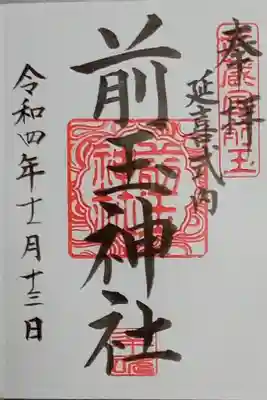 奉拝
延喜式内
前玉神社
令和四年十一月十三日